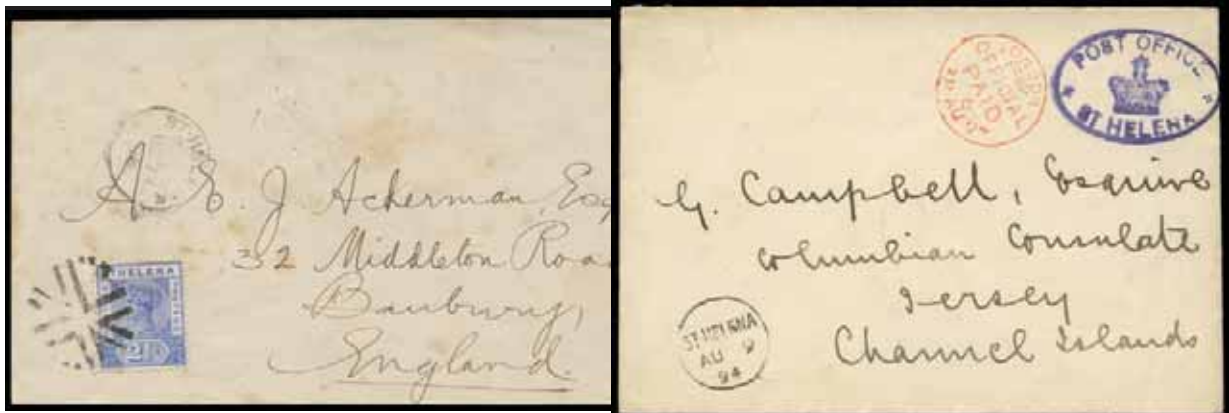 A. E. J Ackerman, Esq
32 Middleton Roa
Banbury,
England.
ST HELENA
POST OFFICE
ST HELENA
OFFICIAL
PAID
G. Campbell, Esquire
Columbian Consulate
Jersey
Channel Islands
ST. HELENA
AU 9
94